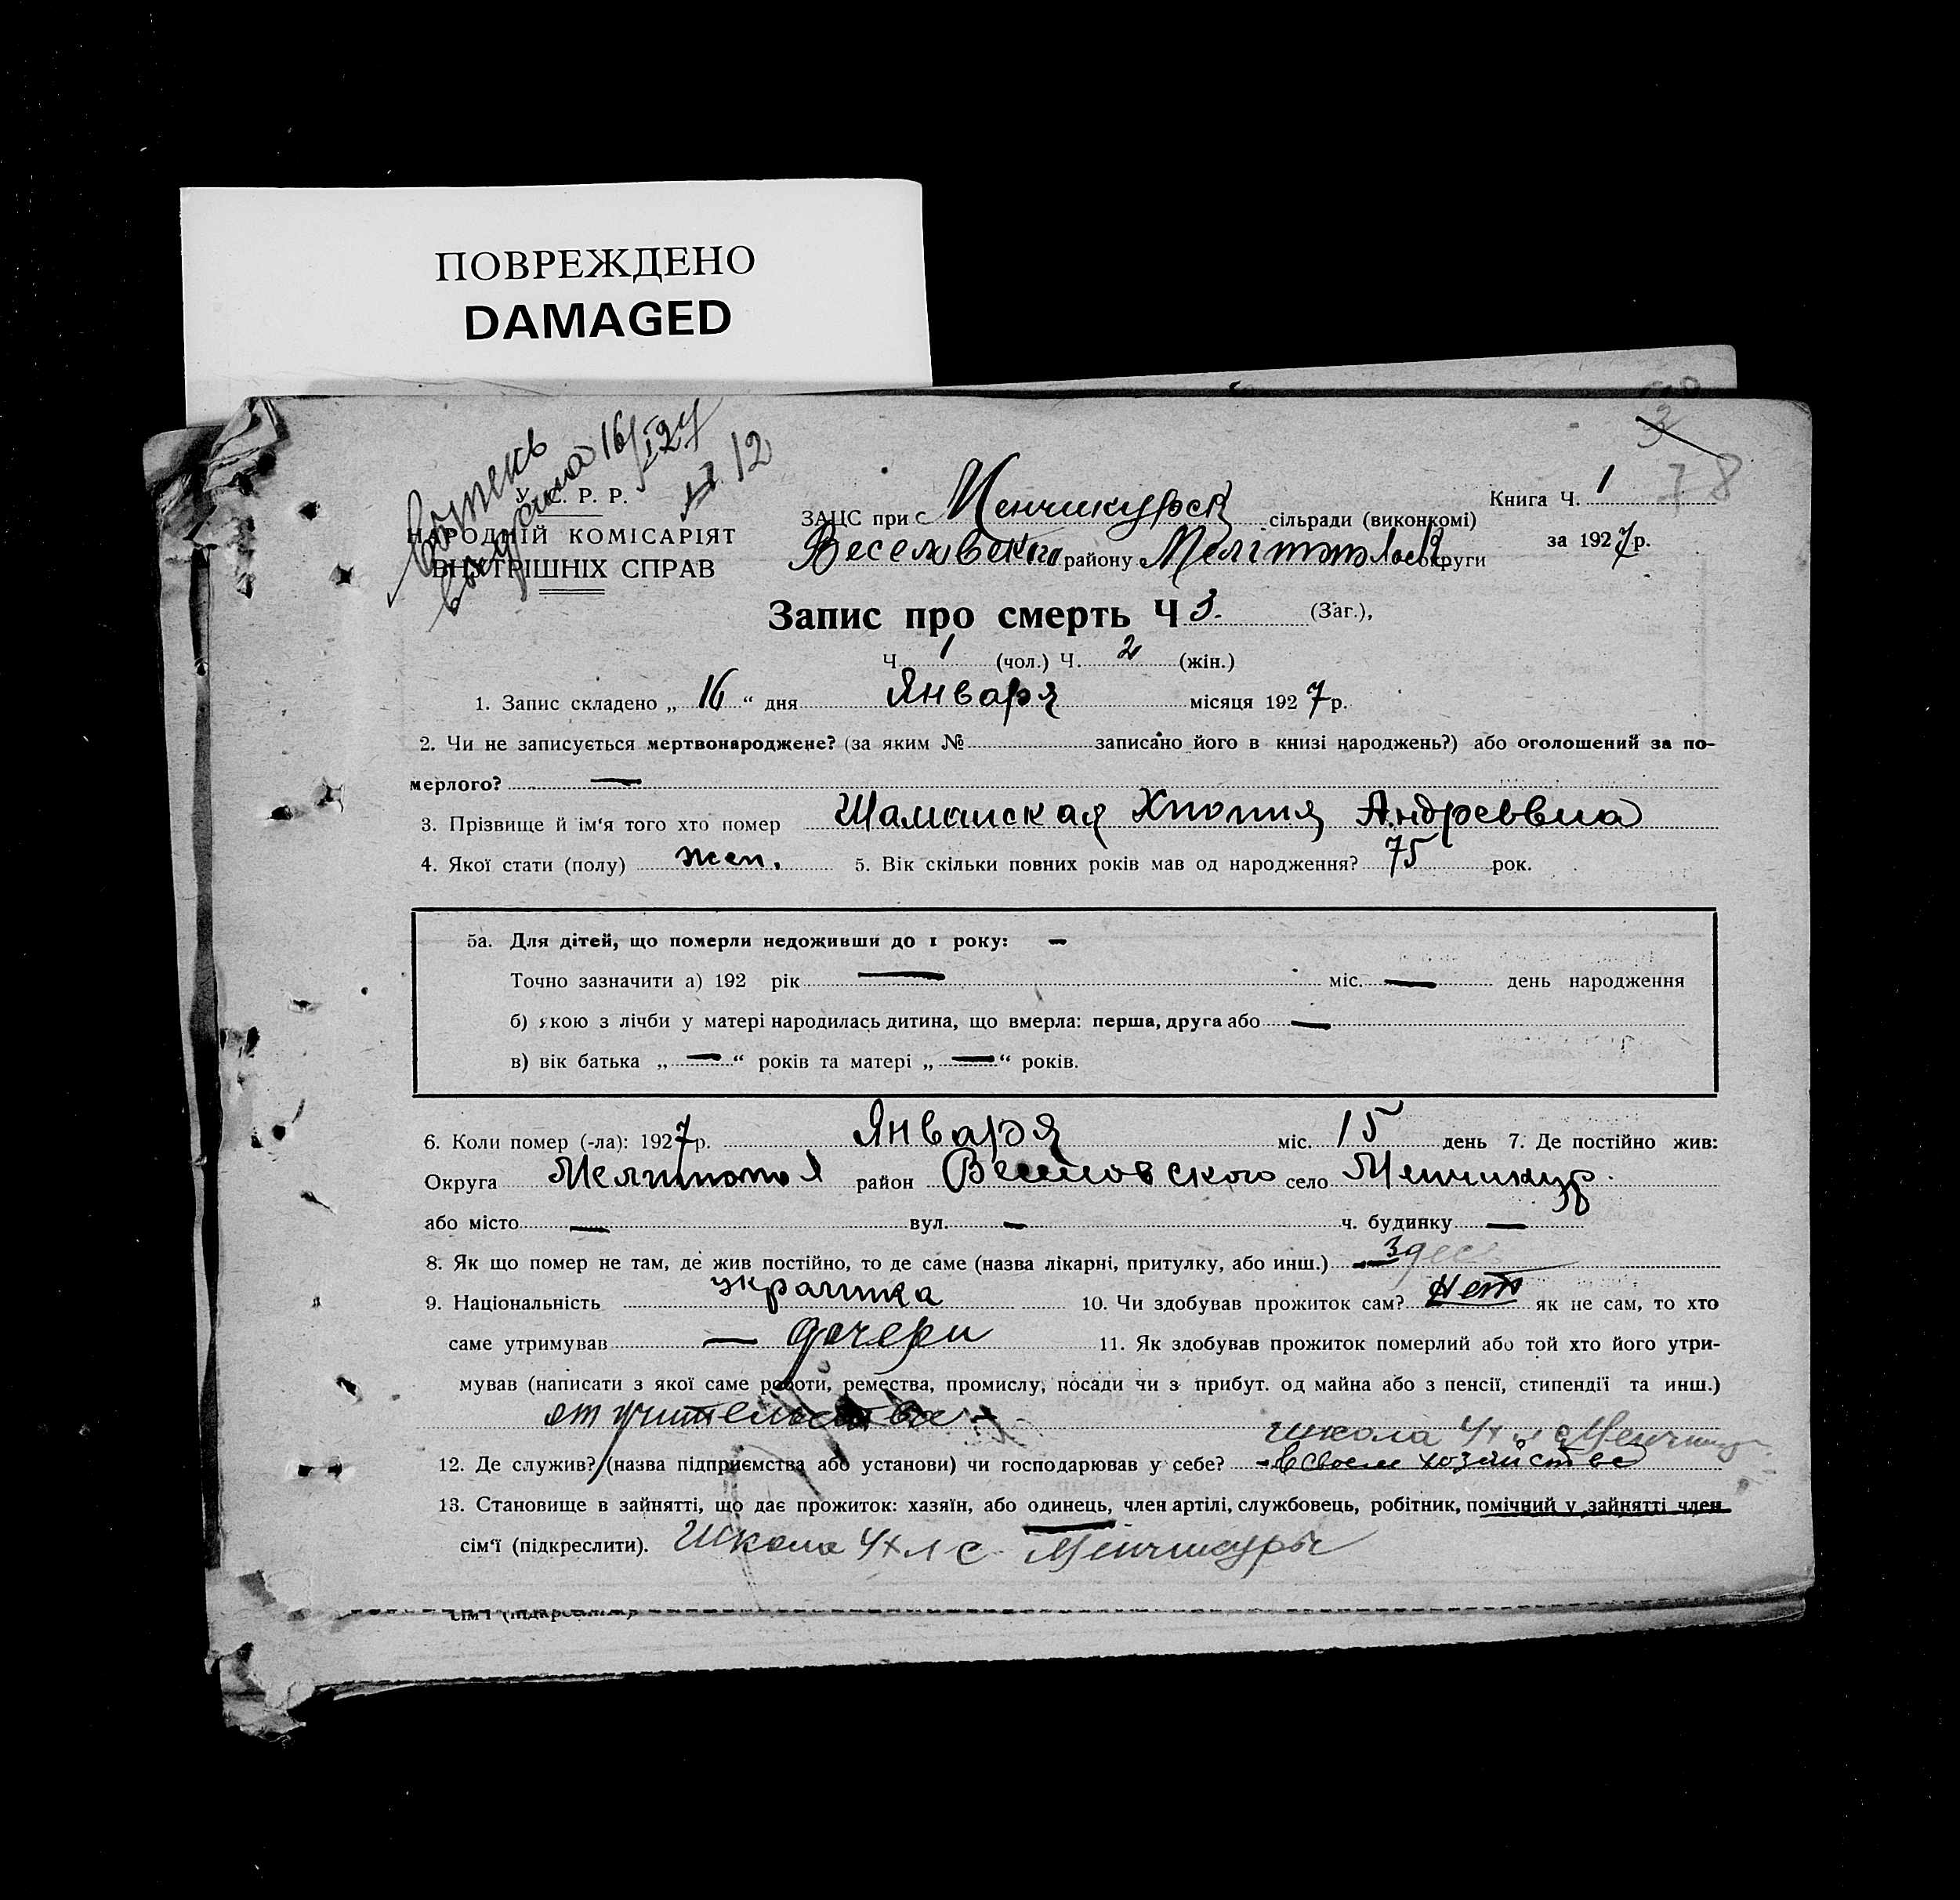 ПОВРЕЖДЕНО
DAMAGED
выпись
16/I 27
№ 12
3
78
У. С. Р. Р.
НАРОДНІЙ КОМІСАРІЯТ
ВНУТРІШНІХ СПРАВ
ЗАЦС при с Менчикурск сільради (виконкомі)
Веселовского району Мелітопольськ округи
Книга Ч. 1
за 1927 р.
Запис про смерть Ч 3. (Заг.),
Ч. 1 (чол.) Ч. 2 (жін.)
1. Запис складено „ 16 “ дня Января місяця 1927 р.
2. Чи не записується мертвонароджене? (за яким № записано його в книзі народжень?) або оголошений за по-
мерлого? —
3. Прізвище й ім'я того хто помер Шаманская Андреевна
4. Якої стати (полу) жен. 5. Вік скільки повних років мав од народження? 75 рок.
5а. Для дітей, що померли недоживши до 1 року: —
Точно зазначити а) 192 рік — міс. — день народження
б) якою з лічби у матері народилась дитина, що вмерла: перша, друга або —
в) вік батька „ — “ років та матері „ — “ років.
6. Коли помер (-ла): 1927 р. Января міс. 15 день 7. Де постійно жив:
Округа Мелитопол район Веселовского село Менчикур.
або місто — вул. — ч. будинку —
8. Як що помер не там, де жив постійно, то де саме (назва лікарні, притулку, або инш.) — здесь
9. Національність украинка 10. Чи здобував прожиток сам? нет як не сам, то хто
саме утримував — дочери 11. Як здобував прожиток померлий або той хто його утри-
мував (написати з якої саме роботи, ремества, промислу, посади чи з прибут. од майна або з пенсії, стипендії та инш.)
от учительства
школа Менчикур
12. Де служив? (назва підприємства або установи) чи господарював у себе? - в своем хозяйстве
13. Становище в зайнятті, що дає прожиток: хазяїн, або одинець, член артілі, службовець, робітник, помічний у зайнятті член
сім'ї (підкреслити). Школа с Менчикуры
сім'ї (підкреслити)